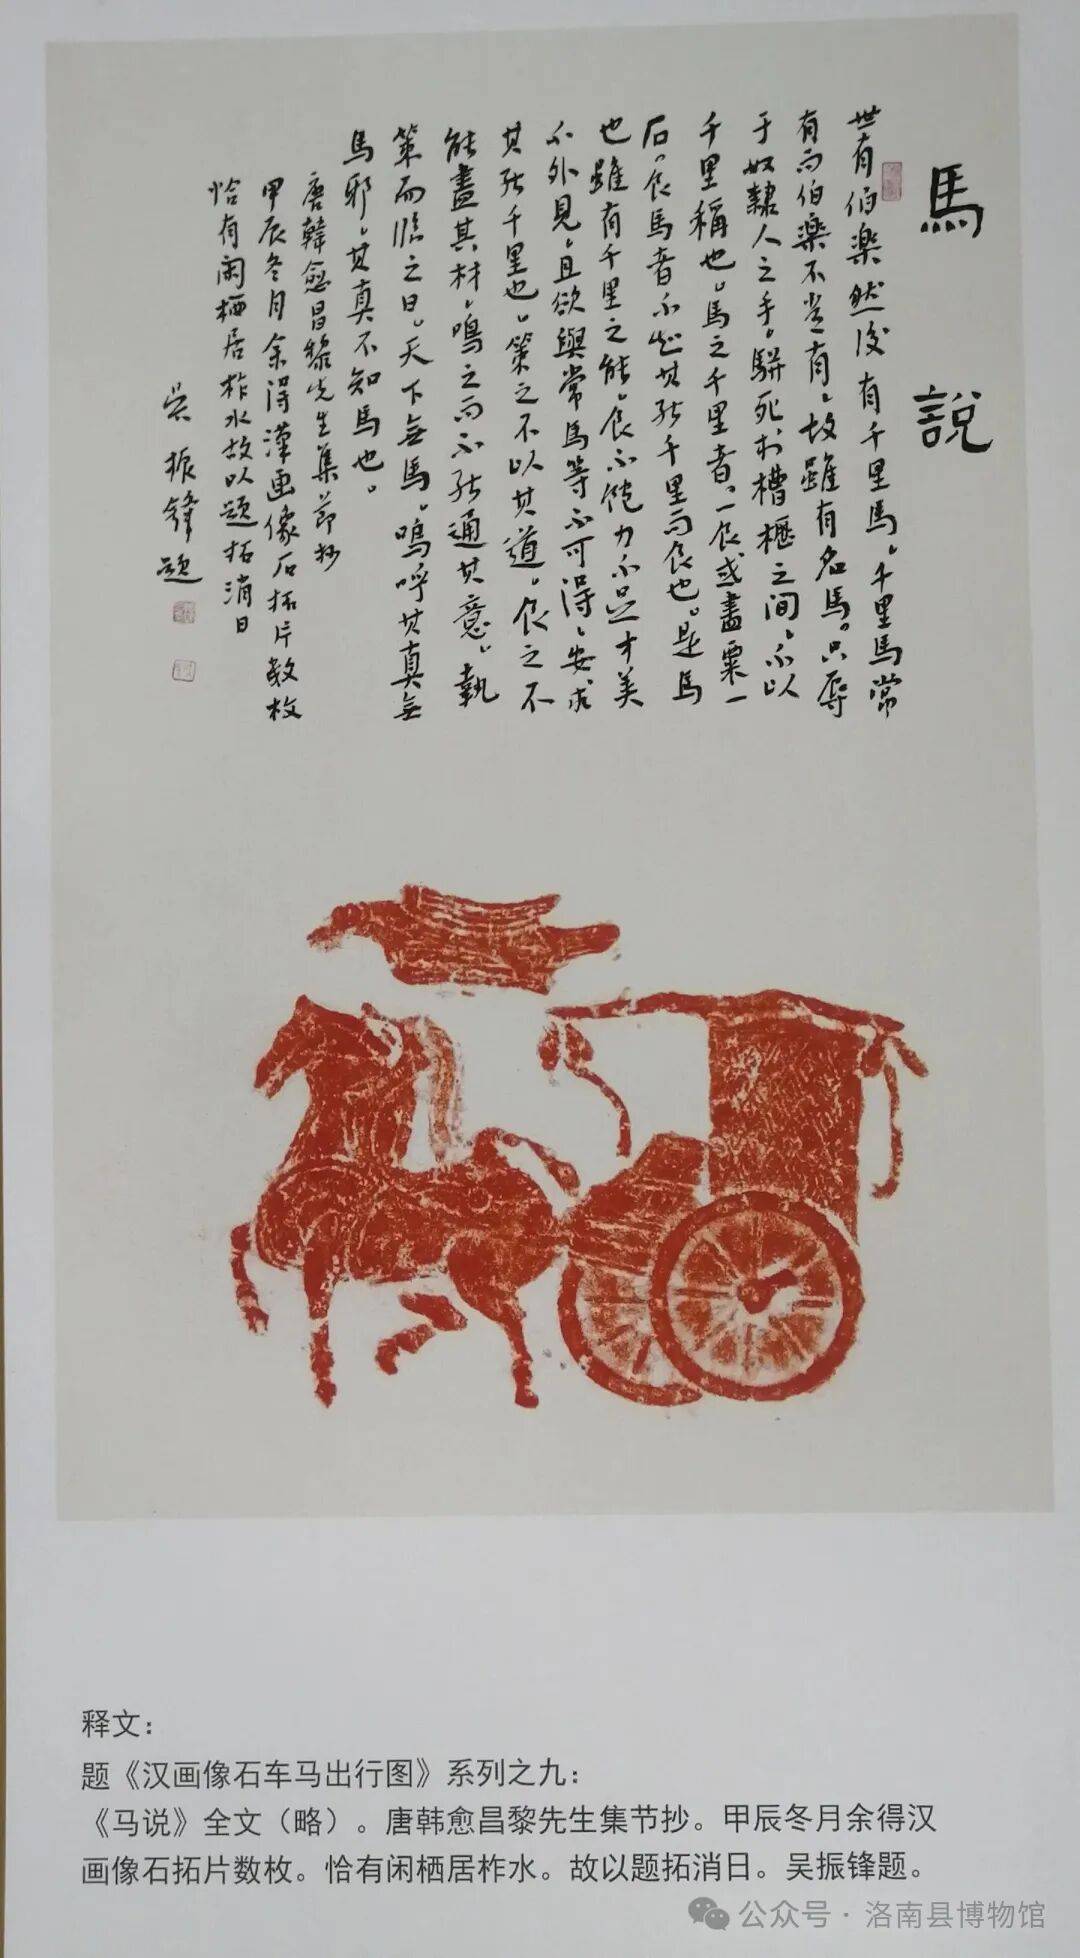 馬說
世有伯楽然後有千里馬。千里馬常
有而伯楽不常有。故雖有名馬。只辱
于奴隸人之手。駢死於槽櫪之間。不以
千里稱也。馬之千里者。一食或盡粟一
石。食馬者不知其能千里而食也。是馬
也雖有千里之能。食不飽力不足才美
不外見。且欲與常馬等不可得。安求
其能千里也。策之不以其道。食之不
能盡其材。鳴之而不能通其意。執
策而臨之曰。天下無馬。嗚呼其真無
馬邪。其真不知馬也。
唐韓愈昌黎先生集節抄
甲辰冬月余得漢画像石拓片数枚
恰有闲栖居柞水故以题拓消日
吴振鋒题
释文：
题《汉画像石车马出行图》系列之九：
《马说》全文（略）。唐韩愈昌黎先生集节抄。甲辰冬月余得汉
画像石拓片数枚。恰有闲栖居柞水。故以题拓消日。吴振锋题。
公众号·洛南县博物馆